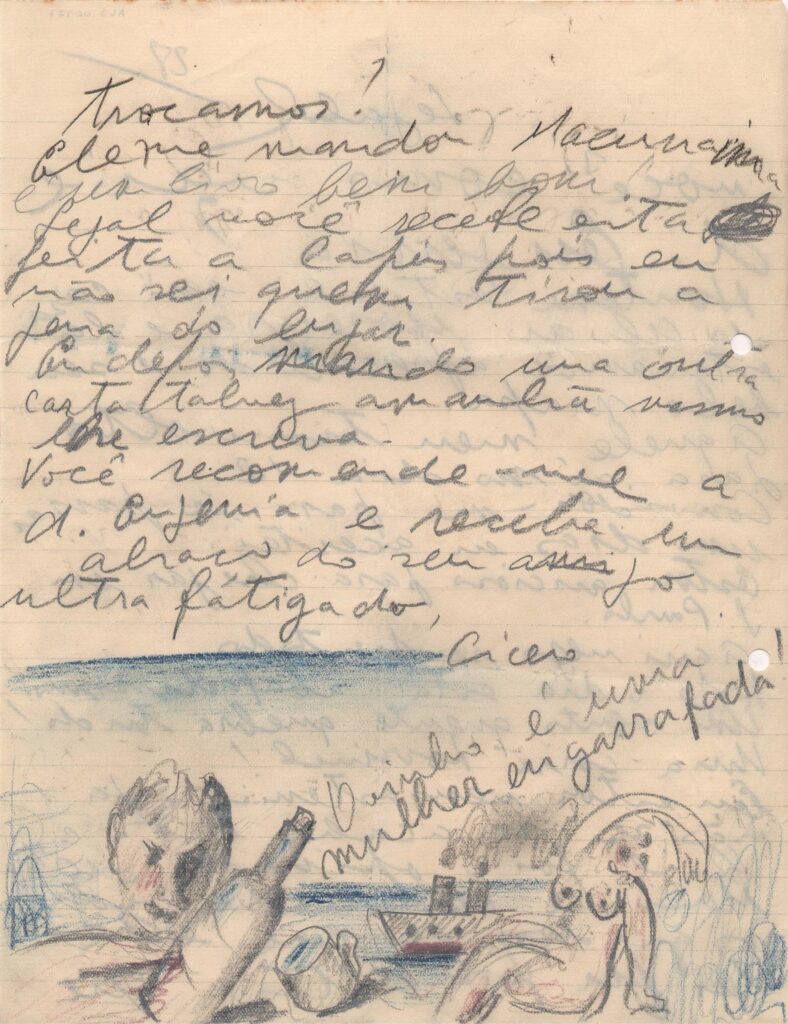 29
trocamos!
Ele me mandou Macunaima
é um livro bem bom!
Legal você recebe esta
feita a lapis pois eu
não sei quem tirou a
pena do lugar.
mando uma outra
carta talvez amanhã mesmo
lhe escreva.
Você recomende-me a
d. Eugenia e receba um
abraço do seu amigo
ultra fatigado,
Cicero
O vinho é uma
mulher engarrafada!